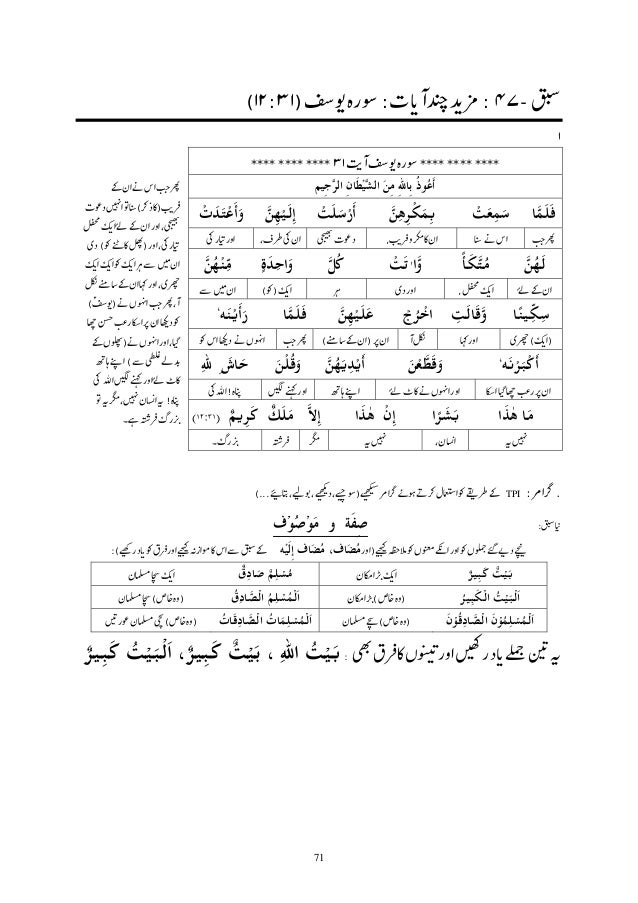 سبق - ۴۷ : مزید چند آیات : سورہ یوسف (۱۲:۳۱)
ا
**** **** **** سورہ یوسف آیت ۳۱ **** **** ****
أَعُوذُ بِاللهِ مِنَ الشَّيْطَانِ الرَّجِيمِ
فَلَمَّا سَمِعَتْ بِمَكْرِهِنَّ أَرْسَلَتْ إِلَيْهِنَّ وَأَعْتَدَتْ
پھر جب اس نے سنا ان کا مکر و فریب، دعوت بھیجی ان کی طرف، اور تیار کی
لَهُنَّ مُتَّكَأً وَّاٰتَتْ كُلَّ وَاحِدَةٍ مِّنْهُنَّ
ان کے لئے ایک محفل، اور دی ہر ایک (کو) ان میں سے
سِكِّينًا وَّقَالَتِ اخْرُجْ عَلَيْهِنَّ فَلَمَّا رَأَيْنَهٗ
(ایک) چھری اور کہا نکل آ ان پر (ان کے سامنے) پھر جب انہوں نے دیکھا اس کو
أَكْبَرْنَهٗ وَقَطَّعْنَ أَيْدِيَهُنَّ وَقُلْنَ حَاشَ لِلّٰهِ
ان پر رعب چھا گیا اسکا اور انہوں نے کاٹ لئے اپنے ہاتھ اور کہنے لگیں پناہ! اللہ کی
مَا هٰذَا بَشَرًا إِنْ هٰذَا إِلَّا مَلَكٌ كَرِيمٌ (۱۲:۳۱)
نہیں یہ انسان، نہیں یہ مگر فرشتہ بزرگ۔
پھر جب اس نے ان کے
فریب (کا ذکر) سنا تو انہیں دعوت
بھیجی، اور ان کے لئے ایک محفل
تیار کی، اور (پھل) کاٹنے کو) دی
ان میں سے ہر ایک کو ایک ایک
چھری، اور کہا ان کے سامنے نکل
آ، پھر جب انہوں نے (یوسف)
کو دیکھا ان پر اسکا رعب حسن چھا
گیا، اور انہوں نے (پھلوں کے
بدلے غلطی سے) اپنے ہاتھ
کاٹ لئے اور کہنے لگیں اللہ کی
پناہ! یہ انسان نہیں، مگر یہ تو
بزرگ فرشتہ ہے۔
. گرامر : TPI کے طریقے کو استعمال کرتے ہوئے گرامر سیکھیے (سوچیے، دیکھیے، بولیے، بتایئے، ...)
نیا سبق: صِفَة و مَوْصُوْف
نیچے دیے گئے جملوں کو اور انکے معنوں کو ملاحظہ کیجیے (اور مُضَاف، مُضَاف إِلَيْه کے سبق سے اس کا موازنہ کیجیے اور فرق کو یاد رکھیے) :
بَيْتٌ كَبِيرٌ ایک بڑا مکان مُسْلِمٌ صَادِقٌ ایک سچا مسلمان
اَلْبَيْتُ الْكَبِيرُ (وہ خاص) بڑا مکان اَلْمُسْلِمُ الصَّادِقُ (وہ خاص) سچا مسلمان
اَلْمُسْلِمُوْنَ الصَّادِقُوْنَ (وہ خاص) سچے مسلمان اَلْمُسْلِمَاتُ الصَّادِقَاتُ (وہ خاص) سچی مسلمان عورتیں
یہ تین جملے یاد رکھیں اور تینوں کا فرق بھی : بَيْتُ اللهِ ، بَيْتٌ كَبِيرٌ ، اَلْبَيْتُ كَبِيرٌ
71